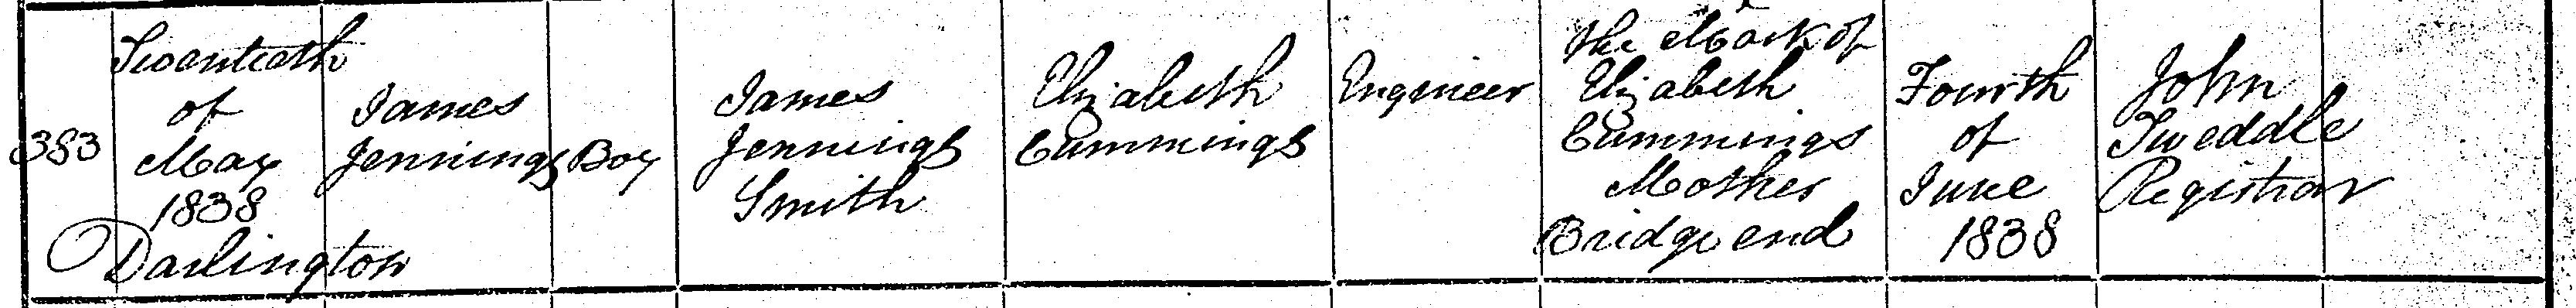 383
Twentieth
of
May
1838
Darlington
James
Jennings
Boy
James
Jennings
Smith
Elizabeth
Cummings
Engineer
The Mark of
Elizabeth
Cummings
Mother
Bridge end
Fourth
of
June
1838
John
Tweddle
Registrar